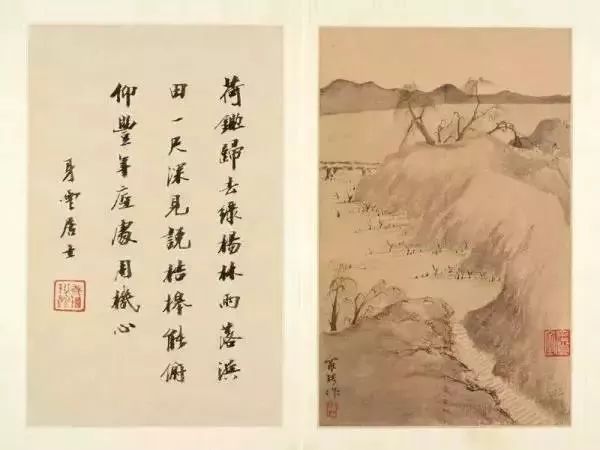 荷歸去綠楊林雨落溪
田一尺深見說桔槔能俯
仰豐年處用機心
身雲居士
羅聘作